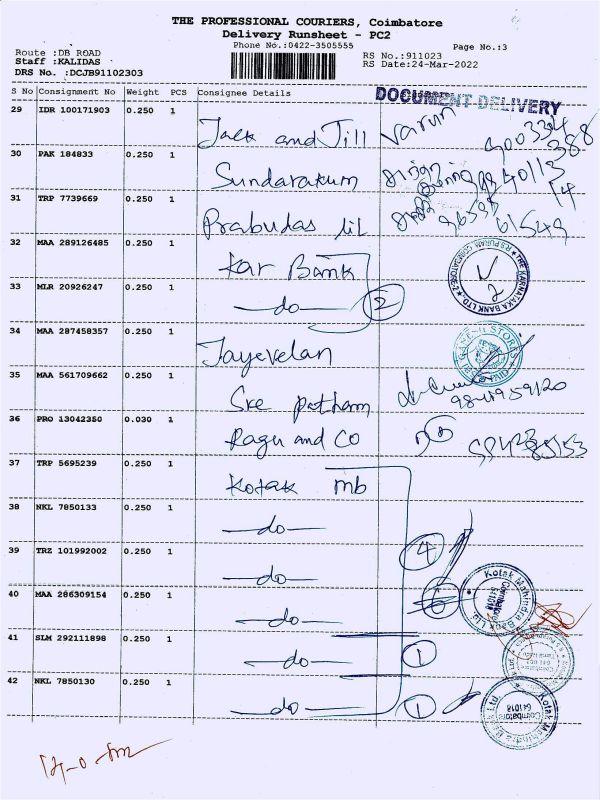 THE PROFESSIONAL COURIERS, Coimbatore
Delivery Runsheet - PC2
Phone No.:0422-3505555
Page No.:3
Route :DB ROAD
RS No.:911023
Staff :KALIDAS
RS Date:24-Mar-2022
DRS No. :DCJB91102303
S No Consignment No Weight PCS Consignee Details
DOCUMENT DELIVERY
29 IDR 100171903 0.250 1 Jack and Jill Varun
30 PAK 184833 0.250 1 Sundarakum
31 TRP 7739669 0.250 1 Prabudas lil
32 MAA 289126485 0.250 1 Kar Bank
33 MLR 20926247 0.250 1 -do- 2
THE KARNATAKA BANK LTD.
34 MAA 287458357 0.250 1 Jayevelan
35 MAA 561709662 0.250 1 Sre Petham
36 PRO 13042350 0.030 1 Ragu and Co
37 TRP 5695239 0.250 1 Kotak mb
38 NKL 7850133 0.250 1 -do-
39 TRZ 101992002 0.250 1 -do- 4
40 MAA 286309154 0.250 1 -do-
Kotak Mahindra Bank Ltd. Coimbatore 641018
41 SLM 292111898 0.250 1 -do- 1
42 NKL 7850130 0.250 1 -do- 1
Kotak Mahindra Bank Ltd. Coimbatore 641018